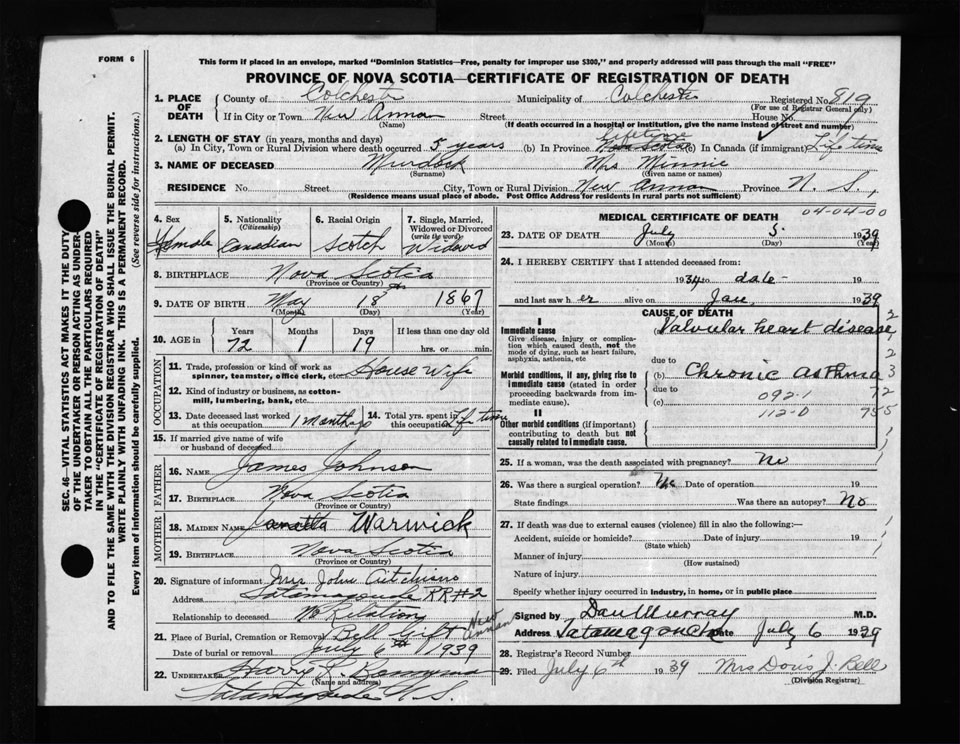 FORM 6
This form if placed in an envelope, marked "Dominion Statistics—Free, penalty for improper use $300," and properly addressed will pass through the mail "FREE"
PROVINCE OF NOVA SCOTIA—CERTIFICATE OF REGISTRATION OF DEATH
1. PLACE OF DEATH County of Colchester Municipality of Colchester Registered No. 819
(For use of Registrar General only)
If in City or Town New Annan Street House No.
(Name) (If death occurred in a hospital or institution, give the name instead of street and number)
2. LENGTH OF STAY (in years, months and days)
(a) In City, Town or Rural Division where death occurred 5 years (b) In Province Lifetime Nova Scotia (c) In Canada (if immigrant) Life time
3. NAME OF DECEASED Murdock Mrs Minnie
(Surname) (Given name or names)
RESIDENCE No. Street City, Town or Rural Division New Annan Province N. S.,
(Residence means usual place of abode. Post Office Address for residents in rural parts not sufficient)
4. Sex Female
5. Nationality (Citizenship) Canadian
6. Racial Origin Scotch
7. Single, Married, Widowed or Divorced (write the word) Widowed
8. BIRTHPLACE Nova Scotia
(Province or Country)
9. DATE OF BIRTH May 18 1867
(Month) (Day) (Year)
10. AGE in Years Months Days If less than one day old
72 1 19 hrs. or min.
OCCUPATION
11. Trade, profession or kind of work as spinner, teamster, office clerk, etc. House Wife
12. Kind of industry or business, as cotton-mill, lumbering, bank, etc.
13. Date deceased last worked at this occupation 1 month ago 14. Total yrs. spent in this occupation Life time
15. If married give name of wife or husband of deceased
FATHER
16. NAME James Johnson
17. BIRTHPLACE Nova Scotia
(Province or Country)
MOTHER
18. MAIDEN NAME Warwick
19. BIRTHPLACE Nova Scotia
(Province or Country)
20. Signature of informant Mrs John
Address RR#2
Relationship to deceased No Relation
21. Place of Burial, Cremation or Removal Bell New Annan
Date of burial or removal July 6th 1939
22. UNDERTAKER
(Name and address)
N.S.
MEDICAL CERTIFICATE OF DEATH
04-04-00
23. DATE OF DEATH July 5. 1939
(Month) (Day) (Year)
24. I HEREBY CERTIFY that I attended deceased from:
1934 to date
and last saw her alive on 1939
CAUSE OF DEATH
I
Immediate cause
Give disease, injury or complication which caused death, not the mode of dying, such as heart failure, asphyxia, asthenia, etc
(a) Valvular heart disease
due to
Morbid conditions, if any, giving rise to immediate cause (stated in order proceeding backwards from immediate cause).
(b) Chronic asthma
due to 092-1 72
(c) 112-0
II
Other morbid conditions (if important) contributing to death but not causally related to immediate cause.
25. If a woman, was the death associated with pregnancy? No
26. Was there a surgical operation? No Date of operation 19
State findings Was there an autopsy? No
27. If death was due to external causes (violence) fill in also the following:—
Accident, suicide or homicide? Date of injury 19
(State which)
Manner of injury
(How sustained)
Nature of injury
Specify whether injury occurred in industry, in home, or in public place
Signed by Dan Murray M.D.
Address Tatamagouche Date July 6 1939
28. Registrar's Record Number
29. Filed July 6th 1939 Mrs Doris J. Bell
(Division Registrar)
SEC. 46—VITAL STATISTICS ACT MAKES IT THE DUTY
OF THE UNDERTAKER OR PERSON ACTING AS UNDERTAKER TO OBTAIN ALL THE PARTICULARS REQUIRED
IN THE "CERTIFICATE OF REGISTRATION OF DEATH"
AND TO FILE THE SAME WITH THE DIVISION REGISTRAR WHO SHALL ISSUE THE BURIAL PERMIT.
WRITE PLAINLY WITH UNFADING INK. THIS IS A PERMANENT RECORD.
Every item of information should be carefully supplied. (See reverse side for instructions.)